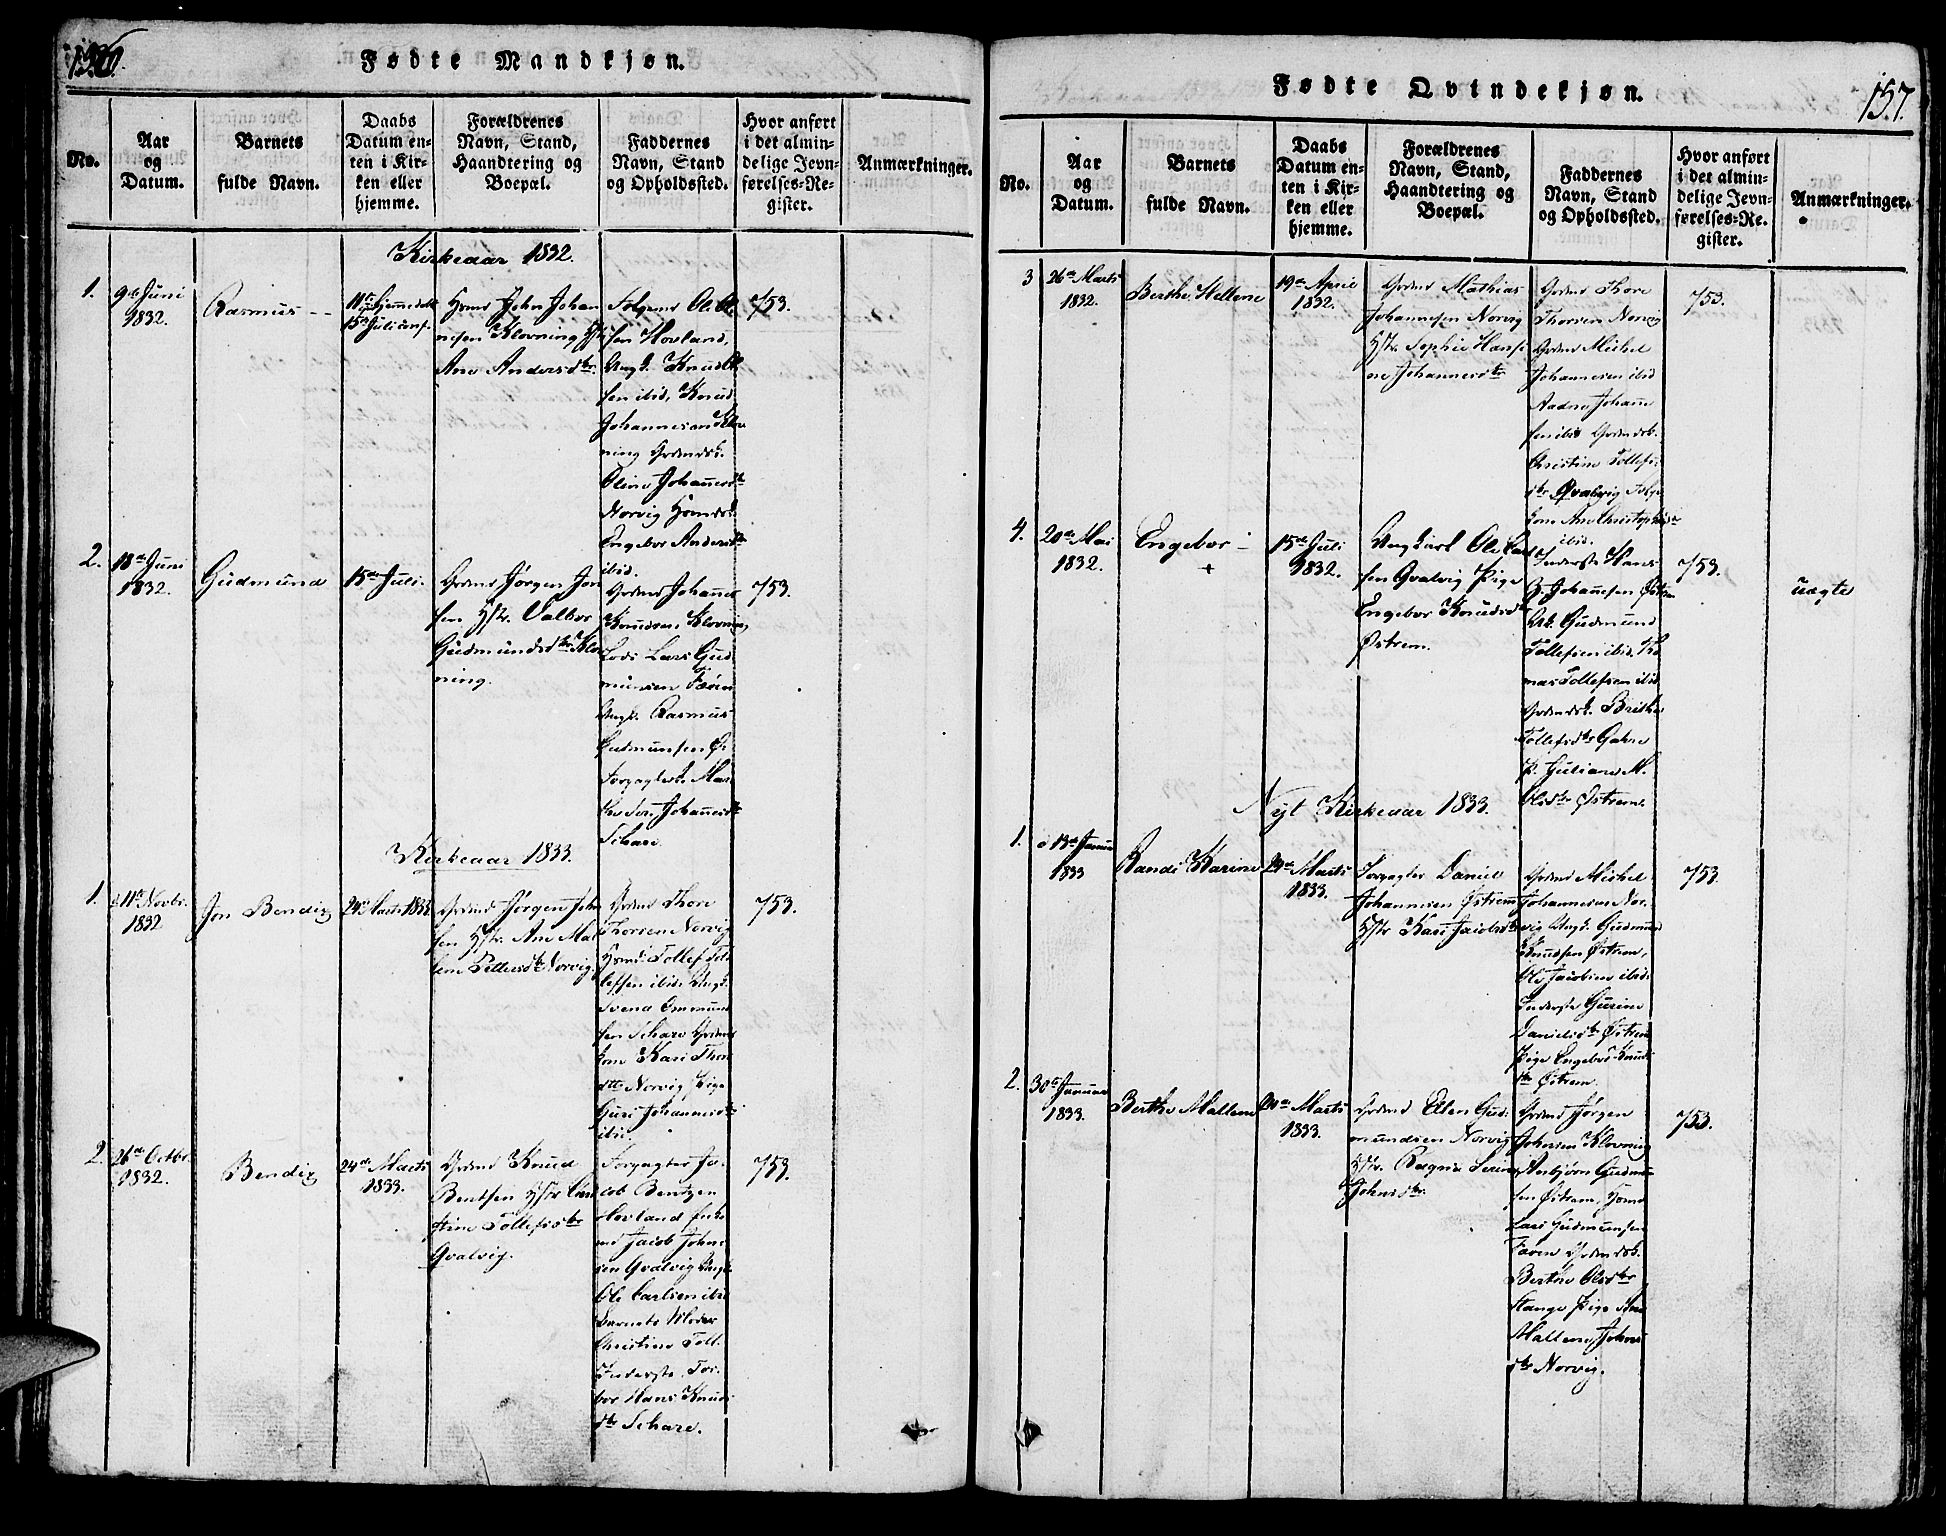 156.
Fødte Mandkjøn.
No.
Aar
og
Datum.
Barnets
fulde Navn.
Daabs
Datum en-
ten i Kir-
ken eller
hjemme.
Forældrenes
Navn, Stand,
Haandtering og
Boepæl.
Faddernes
Navn, Stand
og Opholdssted.
Hvor anført
i det almin-
delige Jevn-
førelses-Re-
gister.
Anmærkninger.
Kirkeaar 1832.
1.
9de Juni
1832.
Rasmus
15de Juli
John Johan
nesen Klovning Hstr
Ane Andersdtr.
Ole Ol
sen Hovland,
Ungk. Knud Ol
sen ibid, Knud
Johannesen Klov
ning Grdmdsk.
Oline Johannesdtr
Norvig
Engebor Andersdtr
ibid.
753.
2.
18de Juni
1832.
Gudmund
15de Juli.
Grdmd Jørgen Jon
sen Hstr. Valbor
Gudmundsdtr Klov
ning.
Grdmd Johannes
Knudsen Klovning
Lods Lars Gud
munsen Føien
Ungk. Rasmus
Gudmunsen
Forpagtersk. Mar
the Johannesdtr
Schare.
753.
Kirkeaar 1833.
1.
d 11te Novbr.
1832
Jon Bendix
24de Marts 1833
Grdmd Jørgen John
sen Hstr. Ane Mal
lene Tollefsdtr Norvig.
Grdmd Thore
Thorsen Norvig
Tollef Tol
lefsen ibid. Ungk.
Svend Ommund
sen Schare Grdmd
kone Kari Thors
dtr Norvig Pige
Guri Johannesdtr
ibid.
753.
2.
26de Octbr.
1832.
Bendix
24de Marts
1833.
Grdmd Knud
Bentsen Hstr Chri
stine Tollefsdtr
Qvalvig.
Forpagter Ja-
cob Bentzen
Hovland Enke
md Jacob John
sen Qvalvig Ungk.
Ole Carlsen ibid
Barnets Moder
Christine Toll.
Inderste Tor
bor Hans Knuds
dtr Schare.
753.
157.
Fødte Qvindekjøn.
No.
Aar
og
Datum.
Barnets
fulde Navn.
Daabs
Datum en-
ten i Kir-
ken eller
hjemme.
Forældrenes
Navn, Stand,
Haandtering og
Boepæl.
Faddernes
Navn, Stand
og Opholdssted.
Hvor anført
i det almin-
delige Jevn-
førelses-Re-
gister.
Anmærkninger.
3
26de Marts
1832.
Berthe Hellene
19de April
1832.
Grdmd Mathias
Johannesen Norvig
Hstr. Sophie Hansi
ne Johannesdtr
Grdmd Thore
Thorsen Norvig
Grdmd Michel
Johannesen ibid
Aadne Johanne
sen ibid Grdmdsk.
Christine Tollefs
dtr Qvalvig
kone Ane Christophersdtr
ibid.
753.
4.
20de Mai
1832.
Engebor
+
15de Juli
1832.
Ungkarl Ole Carl
sen Qvalvig Pige
Engebor Knudsdtr
Østrem.
Inderste Hans
Johannesen Østrem
Uk. Gudmund
Tollefsen ibid. Tho
mas Tollefsen ibid
Grdmdsk. Brithe
Tollefsdtr
P. Juliane M.
Olsdtr Østrem.
753.
uægte
Nyt Kirkeaar 1833.
1.
d 13de Januar
1833
Randi Karine
24de Marts
1833.
Forpagter Daniel
Johannesen Østrem
Hstr Kari Jacobsdtr
Grdmd Michel
Johannesen Nor-
vig Ungk. Gudmund
Knudsen Østrem,
Ole Jacobsen ibid.
Inderste Gurine
Danielsdtr Østrem
Pige Engebor Knuds
dtr Østrem.
753.
2.
30te Januar
1833.
Berthe Mallene
24de Marts
1833.
Grdmd Ellen Gud
mundsen Norvig
Hstr. Ragna Serine
Johnsdtr.
Grdmd Jørgen
Johnsen Klovning
Asbjørn Gudmun
sen Østrem,
Lars Gudmunsen
Føien Grdmdsk.
Berthe Olsdtr
Stange Pige Ane
Mallene Johns
dtr Norvig.
753.